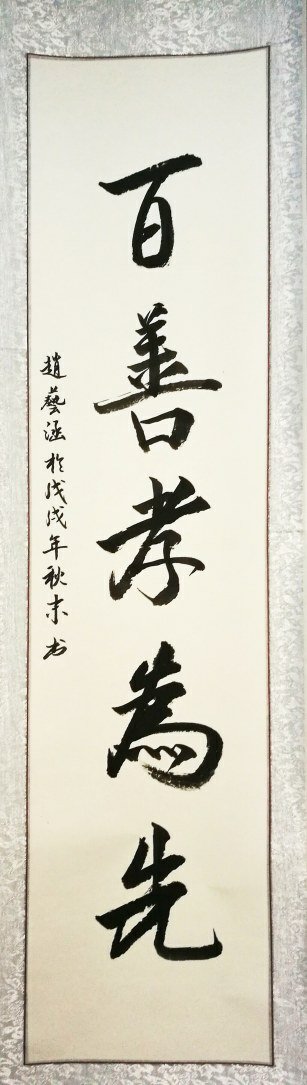 百善孝為先
趙藝涵於戊戌年秋末书